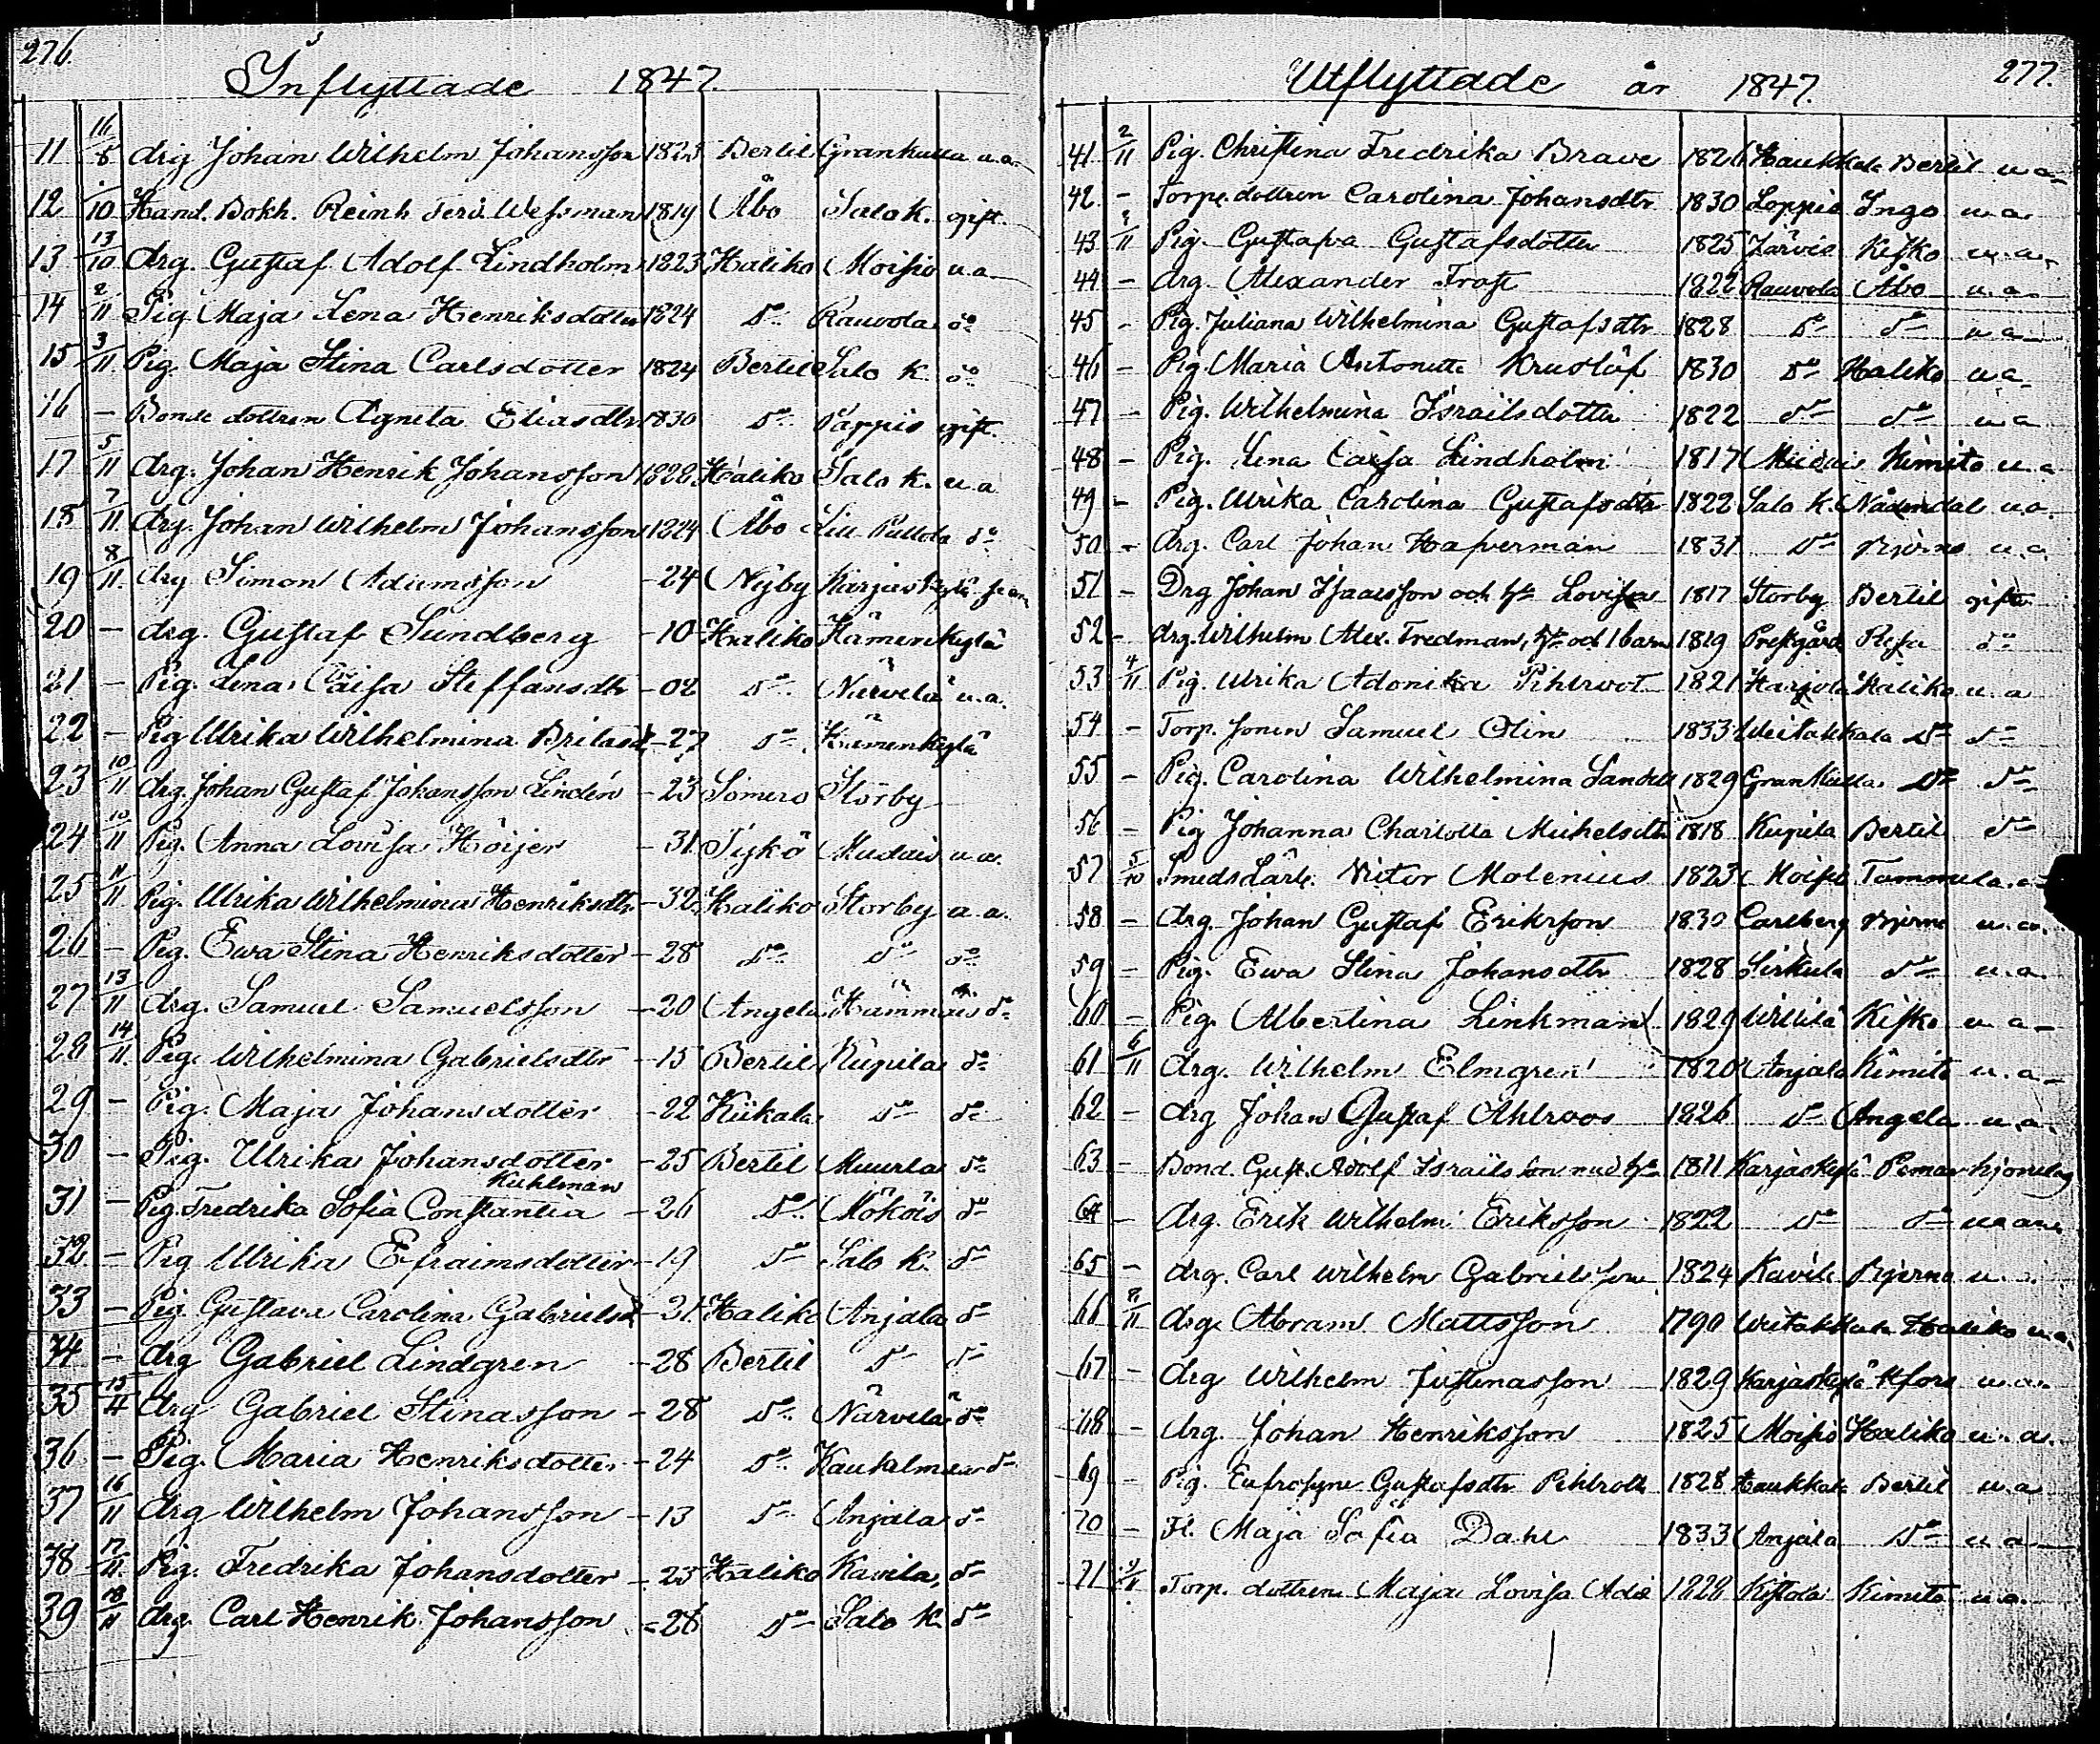 276.
Inflyttade 1847.
11 16/8 drg Johan Wilhelm Johansson 1823 Bertil Grankulla u.a.
12 /10 Hand. Bokh. Reinh. Ferd. Wessman 1819 Åbo Salo k. ogift.
13 13/10 drg. Gustaf Adolf Lindholm 1823 Haliko Moisio u.a
14 2/11 Pig Maja Lena Henriksdotter 1824 do Rauvola do
15 3/11 Pig. Maja Stina Carlsdotter 1824 Bertil Salo k. do
16 – Bonde dottren Agneta Eliasdtr 1830 do Pappis ogift.
17 5/11 drg. Johan Henrik Johansson 1828 Haliko Salo k. u.a
18 7/11 drg. Johan Wilhelm Johansson 1824 Åbo Lill Pullola do
19 8/11 drg Simon Adamsson –24 Nyby Karjaskylä
20 – drg. Gustaf Sundberg –10 Haliko Hämenkylä
21 – Pig. Lena Caisa Steffansdtr –02 do Närvelä u.a.
22 – Pig Ulrika Wilhelmina –27 do Hämenkylä
23 10/11 drg. Johan Gustaf Johansson Lindén –23 Somero Storby
24 10/11 Pig. Anna Lovisa Höijer –31 Tykö Mudais u.a.
25 11/11 Pig. Ulrika Wilhelmina Henriksdtr –32 Haliko Storby u.a.
26 – Pig. Ewa Stina Henriksdotter –28 do do do
27 13/11 drg. Samuel Samuelsson –20 Angela Hämmäis do
28 14/11 Pig. Wilhelmina Gabrielsdtr –15 Bertil Kupila do
29 – Pig. Maja Johansdotter –22 Kiikala do do
30 – Pig. Ulrika Johansdotter –25 Bertil Muurla do
Kuhlman
31 – Pig. Fredrika Sofia Constantia –26 do Mökois do
32 – Pig Ulrika Efraimsdotter –19 do Salo k. do
33 – Pig. Gustava Carolina Gabrielsd –21 Haliko Anjala do
34 – drg Gabriel Lindgren –28 Bertil do do
35 15/11 drg Gabriel Stinasson –28 do Närvelä do
36 – Pig. Maria Henriksdotter –24 do do
37 16/11 drg Wilhelm Johansson –13 do Anjala do
38 17/11 Pig. Fredrika Johansdotter –23 Haliko Kavila do
39 18/11 drg. Carl Henrik Johansson –28 do Salo k do
277.
Utflyttade år 1847.
41 2/11 Pig. Christina Fredrika Brave 1826 Haukkala Bertil u.a.
42 – Torpe. dottren Carolina Johansdtr 1830 Loppis Ingo u.a.
43 2/11 Pig. Gustafva Gustafsdotter 1825 Järvis Kisko u.a.
44 – drg. Alexander Frost 1822 Rauvola Åbo u.a.
45 – Pig. Juliana Wilhelmina Gustafsdtr 1828 do do u.a
46 – Pig. Maria Antonette Kruslöf 1830 do Haliko u.a.
47 – Pig. Wilhelmina Israilsdotter 1822 do do u.a
48 – Pig. Lena Caisa Lindholm 1817 Mudais Kimito u.a
49 – Pig. Ulrika Carolina Gustafsdtr 1822 Salo k. Nådendal u.a.
50 – drg. Carl Johan Hafverman 1831 do Bjerno u.a.
51 – Drg Johan Isaacsson och h. Lovisa 1817 Storby Bertil gifta
52 – drg. Wilhelm Alex. Fredman, h. och 1 barn 1819 Prestgård Resa do
53 4/11 Pig. Ulrika Adonika Pihlroot 1821 Harjola Haliko u.a
54 – Torp. sonen Samuel Olin 1833 Weitakkala do do
55 – Pig. Carolina Wilhelmina Sandell 1829 Grankulla do do
56 – Pig Johanna Charlotta Michelsdtr 1818 Kupila Bertil do
57 5/10 Smeds Lärl. Victor Molenius 1823 Moisio Tammela. u.a
58 – drg. Johan Gustaf Eriksson 1830 Carlberg Bjerno u.a.
59 – Pig. Ewa Stina Johansdtr 1828 Sirkula do u.a.
60 – Pig. Albertina Linkman 1829 Wilhilä Kisko u.a
61 6/11 drg. Wilhelm Elmgren 1820 Anjala Kimito u.a
62 – drg Johan Gustaf Ahlroos 1826 do Angela u.a.
63 – Bond. Gust. Adolf Israilsson med h. 1811 Karjaskylä Pemar
64 – drg. Erik Wilhelm Eriksson 1822 do do
65 – drg. Carl Wilhelm Gabrielsson 1824 Kavila Bjerno u.
66 8/11 drg. Abram Mattsson 1790 Weitakkala Haliko u.a.
67 – drg Wilhelm Justinasson 1829 Karjaskylä Hfors u.a.
68 – drg. Johan Henriksson 1825 Moisio Haliko u.a.
69 – Pig. Eufrosyne Gustafsdtr Pihlroth 1828 Haukkala Bertil u.a
70 – Fl. Maja Sofia Dahl 1833 Anjala do u.a
71 9/11 Torp. dottren Maja Lovisa 1828 Kistola Kimito u.a.